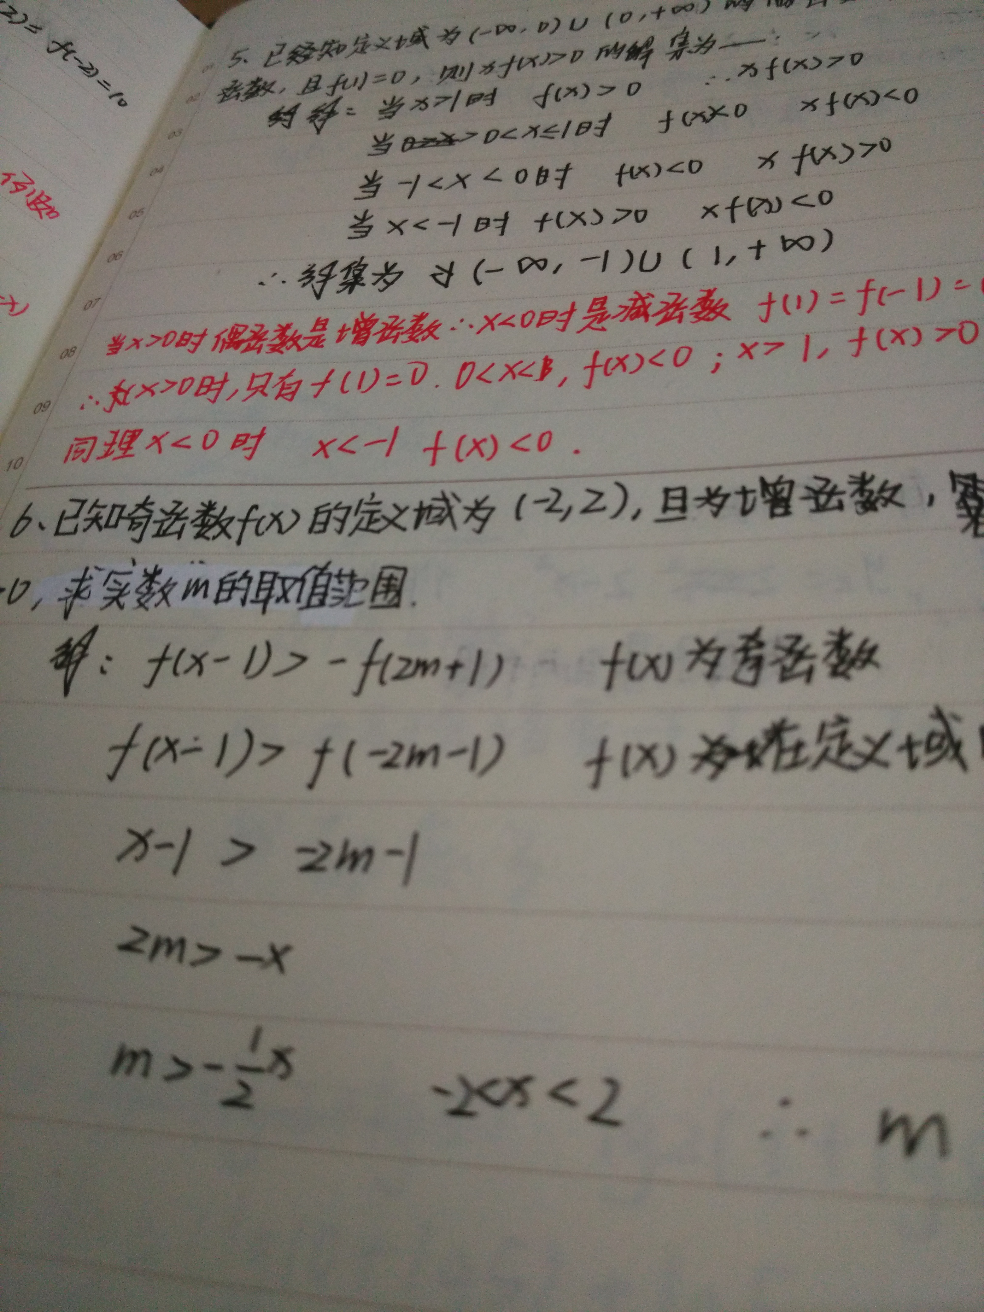 2)= f(-2)=10
5、已知定义域为(-∞,0)∪(0,+∞)的
函数,且f(1)=0,则xf(x)>0的解集为——.
解:当x>1时 f(x)>0 ∴xf(x)>0
当0<x≤1时 f(x)<0 xf(x)<0
当-1<x<0时 f(x)<0 xf(x)>0
当x<-1时 f(x)>0 xf(x)<0
∴解集为 (-∞,-1)∪(1,+∞)
当x>0时偶函数是增函数∴x<0时是减函数 f(1)=f(-1)=
∴x>0时,只有f(1)=0. 0<x<1, f(x)<0; x>1, f(x)>0
同理x<0时 x<-1 f(x)<0.
6、已知奇函数f(x)的定义域为(-2,2),且为增函数,
0,求实数m的取值范围.
解: f(x-1)>-f(2m+1) f(x)为奇函数
f(x-1)> f(-2m-1) f(x)在定义域
x-1 > -2m-1
2m>-x
m>-1/2x -2<x<2 ∴ m
01
02
03
04
05
06
07
08
09
10